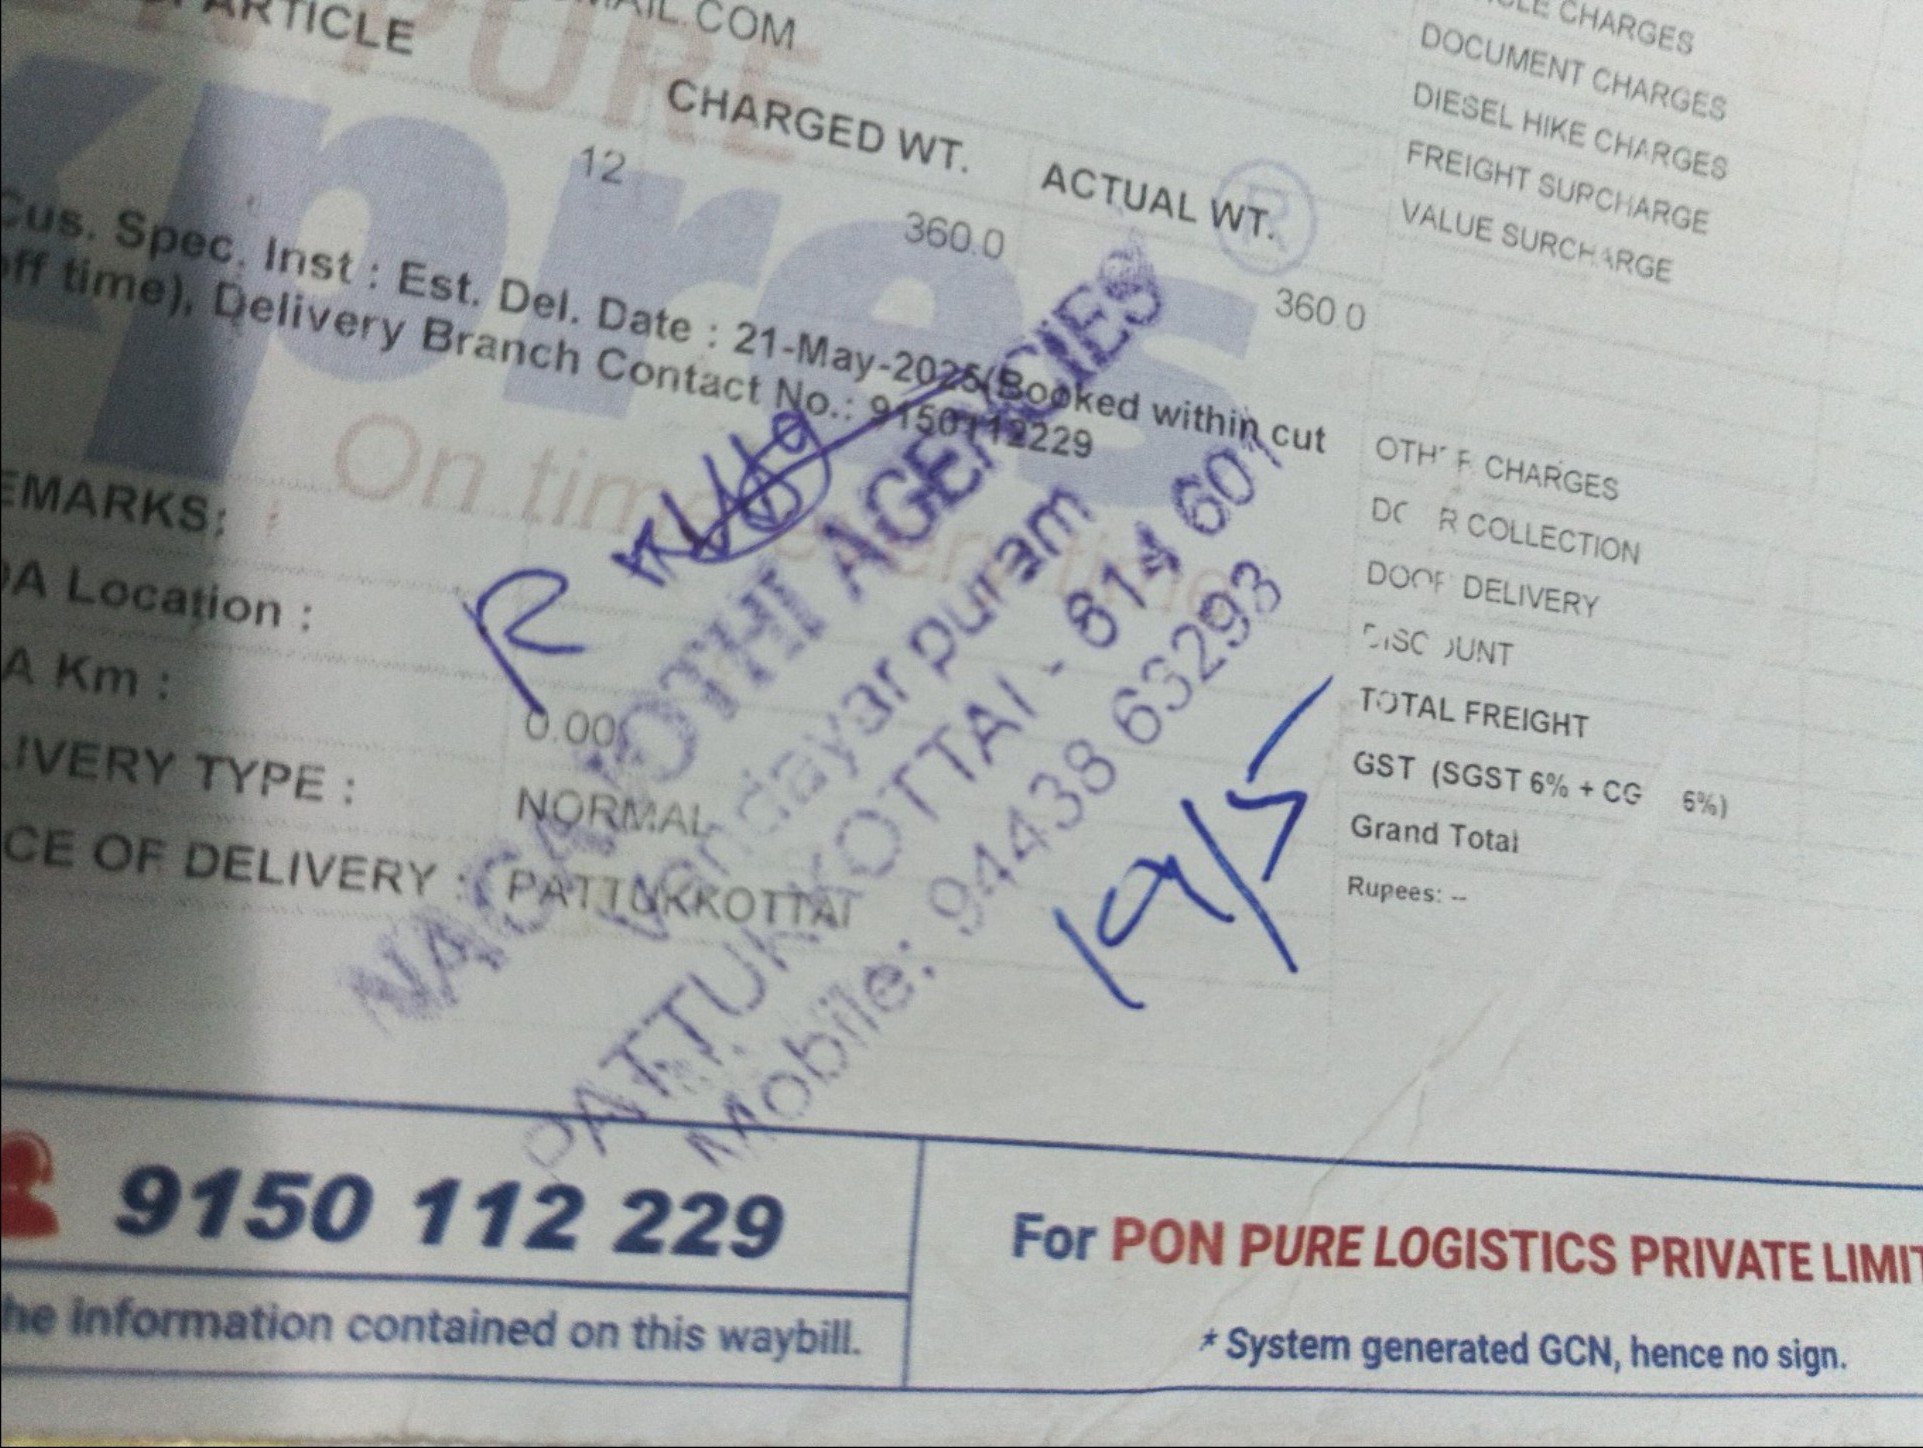 PURE
MAIL.COM
ARTICLE
CHARGED WT.
ACTUAL WT.
12
360.0
360.0
Cus. Spec. Inst : Est. Del. Date : 21-May-2025(Booked within cut
off time), Delivery Branch Contact No.: 9150112229
xpres
®
On time
EMARKS:
DA Location :
A Km :
0.00
LIVERY TYPE :
NORMAL
CE OF DELIVERY :
PATTUKKOTTAI
CLE CHARGES
DOCUMENT CHARGES
DIESEL HIKE CHARGES
FREIGHT SURCHARGE
VALUE SURCHARGE
OTHER CHARGES
DOOR COLLECTION
DOOR DELIVERY
DISCOUNT
TOTAL FREIGHT
GST (SGST 6% + CG 6%)
Grand Total
Rupees: --
AGENCIES
Vandayar puram
PATTUKKOTTAI - 614 601
Mobile: 94438 63293
R
19/5
9150 112 229
he information contained on this waybill.
For PON PURE LOGISTICS PRIVATE LIMIT
* System generated GCN, hence no sign.